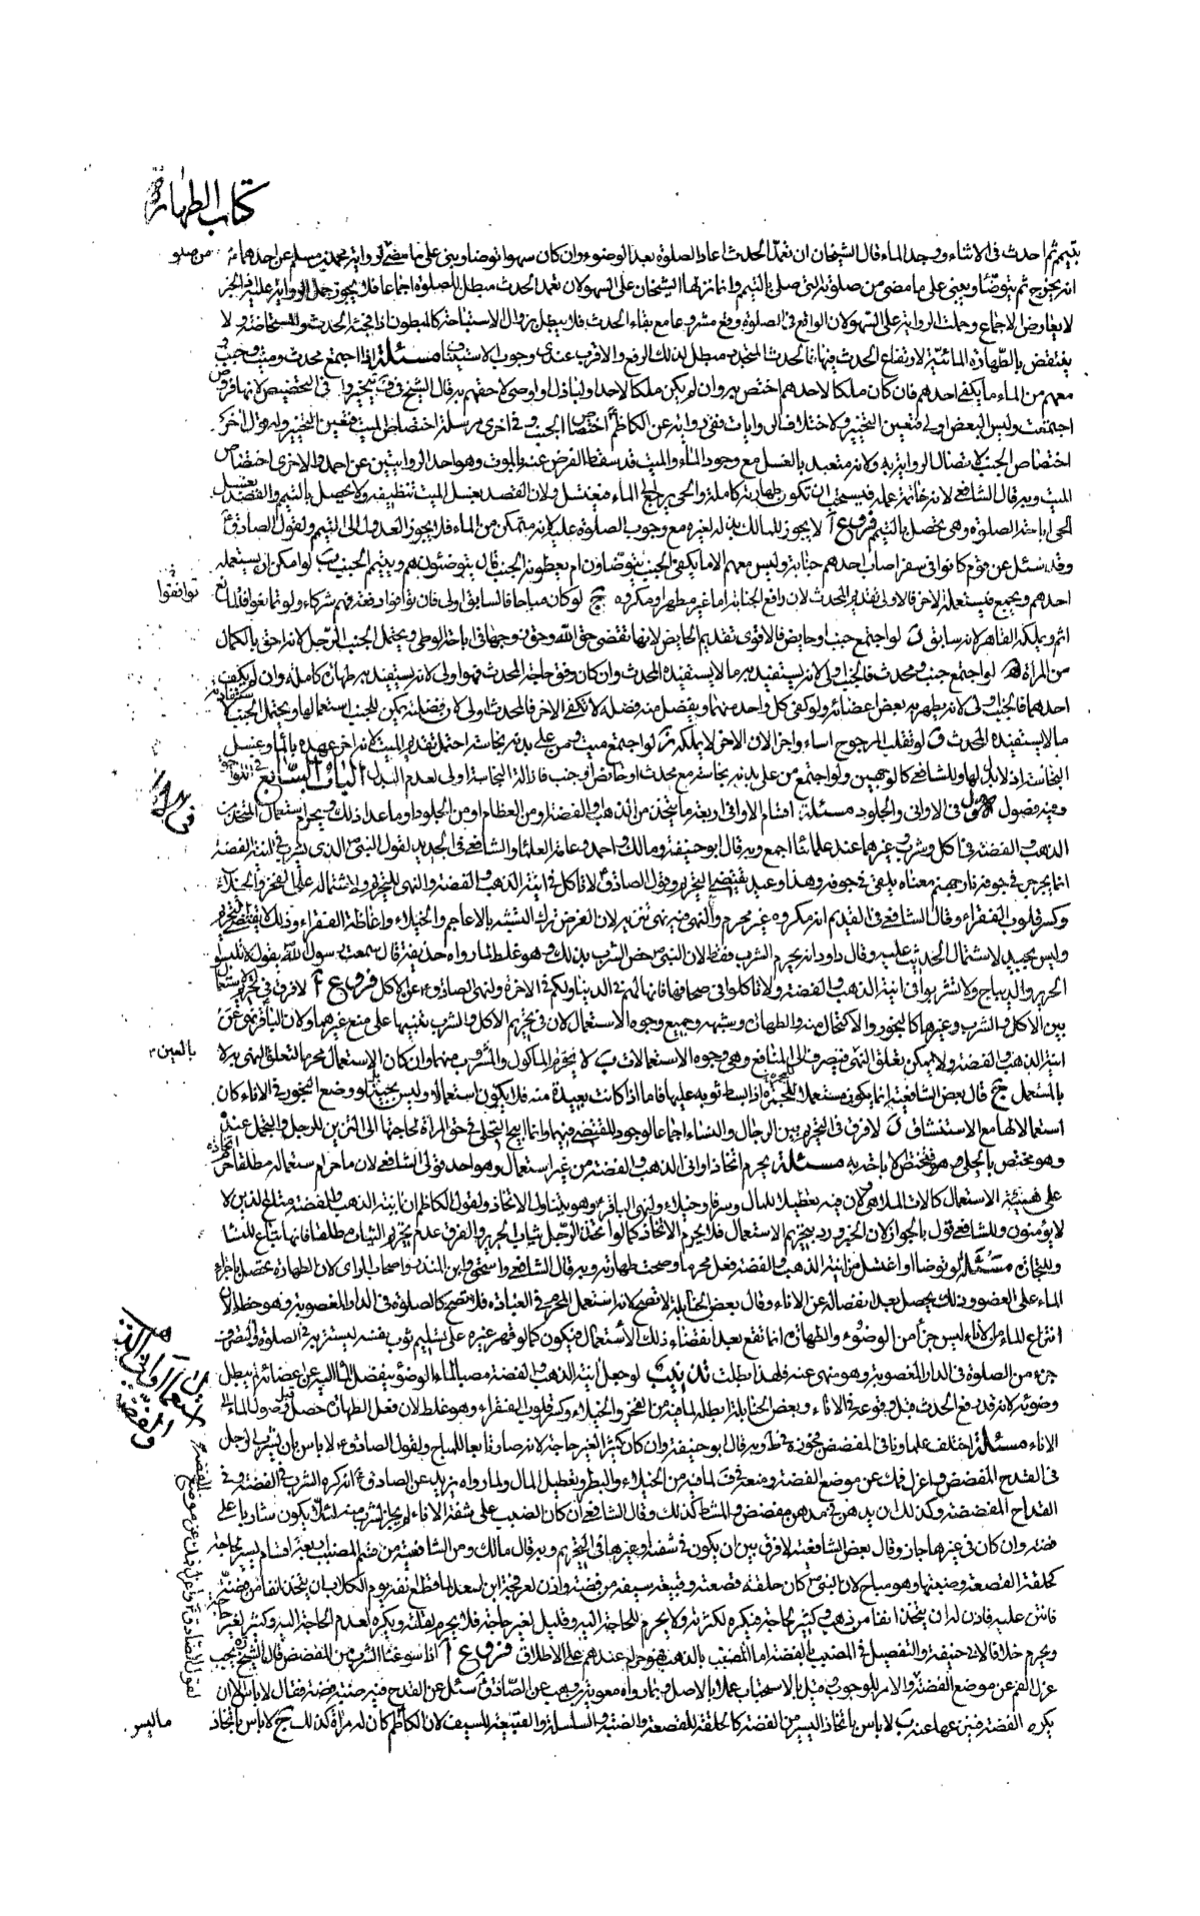 كتاب الطهارة
بتيمم ثم احدث في الاثناء ووجد الماء قال الشيخان ان تعمد الحدث اعاد الصلوة بعد الوضوء وان كان سهوا توضا وبنى على ما مضى لرواية محمد بن مسلم عن احدهما
انه يخرج ثم يتوضا ويبني على ما مضى من صلوته التي صلى بالتيمم وانما نزلها الشيخان على السهو لان تعمد الحدث مبطل للصلوة اجماعا فلا يجوز حمل الرواية عليه
لا يعارض الاجماع وحملت الرواية على السهو لان الواقع في الصلوة وقع مشروعا مع بقاء الحدث فلا يبطل بزوال الاستباحة كالمبطون اذا فجئه الحدث والمستحاضة ولا
ينتقض بالطهارة المائية لارتفاع الحدث فيها فالحدث المتجدد مبطل لذلك الرفع والاقرب عندي وجوب الاستيناف مسئلة اذا اجتمع محدث وميت وجنب و
معهم من الماء ما يكفي احدهم فان كان ملكا لاحدهم اختص به وان لم يكن ملكا لاحد او لباذل او اوصى لاحقهم به قال الشيخ في تخيروا في التخصيص لانها فروض
اجتمعت وليس البعض اولى فتعين التخيير ولاختلاف الروايات ففي رواية عن الكاظم اختصاص الجنب وفي اخرى مرسلة اختصاص الميت فتعين التخيير وله قول اخر
اختصاص الجنب لاتصال الرواية به ولانه متعبد بالغسل مع وجود الماء والميت قد سقط الفرض عنه بالموت وهو احد الروايتين عن احمد وفي الاخرى اختصاص
الميت وبه قال الشافعي لانه خاتمة عمله فيستحب ان تكون طهارته كاملة والحي يرجع الى الماء فيغتسل ولان القصد بغسل الميت تنظيفه ولا يحصل بالتيمم والقصد بغسل
الحي اباحة الصلوة وهي تحصل بالتيمم فروع آ لا يجوز للمالك بذله لغيره مع وجوب الصلوة عليه لانه متمكن من الماء فلا يجوز العدول الى التيمم ولقول الصادق
وقد سئل عن قوم كانوا في سفر اصاب احدهم جنابة وليس معهم الا ما يكفي الجنب يتوضاون ام يعطونه الجنب قال يتوضئون هم ويتيمم الجنب ب لو امكن ان يستعمله
احدهم ويجمع فيستعمله الاخر فالاولى تقديم المحدث لان رافع الجنابة اما غير مطهر او مكروه ج لو كان مباحا فالسابق اولى فان توافوا دفعة فهم شركاء ولو تمانعوا فالمانع
اثم ويملكه القاهر لانه سابق د لو اجتمع جنب وحايض فالاقوى تقديم الحايض لانها تقضي حق الله وحق زوجها في اباحة الوطي ويحتمل الجنب الرجل لانه احق بالكمال
من المراة ه لو اجتمع جنب ومحدث فالجنب اولى لانه يستفيد به ما لا يستفيده المحدث وان كان وفق حاجة المحدث فهو اولى لانه يستفيد به طهارة كاملة وان لم يكف
احدهما فالجنب اولى لانه يطهر به بعض اعضائه ولو كفى كل واحد منهما ويفضل منه فضلة لا تكفي الاخر فالمحدث اولى لان فضلته يمكن للجنب استعمالها ويحتمل الجنب
ما لا يستفيده المحدث و لو تغلب المرجوح اساء واجزا لان الاخر لا يملكه ز لو اجتمع ميت ومن على بدنه نجاسة احتمل تقديم الميت لانه اخر عهده بالماء وغسل
النجاسة اذ لا بدل لها وللشافعي كالوجهين ولو اجتمع من على بدنه نجاسة مع محدث او حائض او جنب فازالة النجاسة اولى لعدم البدل الباب السابع
وفيه فصول الاول في الاواني والجلود مسئلة اقسام الاواني اربعة ما يتخذ من الذهب والفضة ومن العظام ومن الجلود وما عدا ذلك ويحرم استعمال المتخذ من
الذهب والفضة في اكل وشرب وغيرهما عند علمائنا اجمع وبه قال ابو حنيفة ومالك واحمد وعامة العلماء والشافعي في الجديد لقول النبي ص الذي يشرب في انية الفضة
انما يجرجر في جوفه نار جهنم معناه يلقي في جوفه وهذا وعيد يقتضي التحريم وقول الصادق لا تاكل في انية الذهب والفضة والنهي للتحريم ولاشتماله على الفخر والخيلاء
وكسر قلوب الفقراء وقال الشافعي في القديم انه مكروه غير محرم والنهي فيه نهي تنزيه لان الغرض ترك التشبه بالاعاجم والخيلاء واغاظة الفقراء وذلك لا يقتضي التحريم
وليس بجيد لاشتمال الحديث عليه وقال داود انه يحرم الشرب فقط لان النبي ص خص الشرب بذلك وهو غلط لما رواه حذيفة قال سمعت رسول الله يقول لا تلبسوا
الحرير والديباج ولا تشربوا في انية الذهب والفضة ولا تاكلوا في صحافها فانها لهم في الدنيا ولكم في الاخرة ولنهي الصادق عن الاكل فروع آ لا فرق في تحريم الاستعمال
بين الاكل والشرب وغيرهما كالبخور والاكتحال منه والطهارة وشبهه وجميع وجوه الاستعمال لان في تحريم الاكل والشرب تنبيها على منع غيرهما ولان الباقر نهى عن
انية الذهب والفضة ولا يمكن تعلق النهي فيصرف الى المنافع وهي وجوه الاستعمالات ب لا يحرم الماكول والمشروب منها وان كان الاستعمال محرما لتعلق النهي به لا
بالمستعمل ج قال بعض الشافعية انما يكون مستعملا للمجمرة اذا بسط ثوبه عليها فاما اذا كانت بعيدة منه فلا يكون استعمالا وليس بجيد ولو وضع البخور في الاناء كان
استعمالا لها مع الاستنشاق د لا فرق في التحريم بين الرجال والنساء اجماعا لوجود المقتضي فيهما وانما ابيح التحلي في حق المراة لحاجتها الى التزين للرجل والتجمل عنده
وهو مختص بالحلي فتختص الاباحة به مسئلة يحرم اتخاذ اواني الذهب والفضة من غير استعمال وهو احد قولي الشافعي لان ما حرم استعماله مطلقا حرم
على هيئة الاستعمال كالات الملاهي ولان فيه تعطيلا للمال وسرفا وخيلاء ولنهي الباقر وهو يتناول الاتخاذ ولقول الكاظم انية الذهب والفضة متاع الذين لا
يوقنون وللشافعي قول بالجواز لان الخبر ورد بتحريم الاستعمال فلا يحرم الاتخاذ كما لو اتخذ الرجل ثياب الحرير والفرق عدم تحريم الثياب مطلقا فانها تباع للنساء
وللتجارة مسئلة لو توضا او اغتسل من انية الذهب والفضة فعل محرما وصحت طهارته وبه قال الشافعي واسحق وابن المنذر واصحاب الراي لان الطهارة تحصل باجراء
الماء على العضو وذلك يحصل بعد انفصاله عن الاناء وقال بعض الحنابلة لا تصح لانه استعمل المحرم في العبادة فلا تصح كالصلوة في الدار المغصوبة وهو خطا لان
انتزاع الماء من الاناء ليس جزأ من الوضوء والطهارة انما تقع بعد انقضاء ذلك الاستعمال فيكون كما لو قهر غيره على تسليم ثوب نفسه ليستتر به في الصلوة والتصرف
جزء من الصلوة في الدار المغصوبة وهو منهي عنه فلهذا بطلت تذنيب لو جعل انية الذهب والفضة مصبا لماء الوضوء ينفصل الماء اليه عن اعضائه لم يبطل
وضوئه لانه قد رفع الحدث قبل وقوعه في الاناء وبعض الحنابلة ابطله لما فيه من الفخر والخيلاء وكسر قلوب الفقراء وهو غلط لان فعل الطهارة حصل قبل وصول الماء الى
الاناء مسئلة اختلف علماؤنا في المفضض فجوزه في ط وبه قال ابو حنيفة وان كان كثيرا لغير حاجة لانه صار تابعا للمباح ولقول الصادق لا باس بان يشرب الرجل
في القدح المفضض واعزل فمك عن موضع الفضة ومنعه في ف لما فيه من الخيلاء والبطر وتعطيل المال ولما رواه بريد عن الصادق انه كره الشرب في الفضة وفي
القداح المفضضة وكذلك ان يدهن في مدهن مفضض والمشط كذلك وقال الشافعي ان كان الضبب على شفة الاناء لم يجز الشرب منه لئلا يكون شاربا على
فضة وان كان في غيرها جاز وقال بعض الشافعية لا فرق بين ان يكون في شفته او غيرها في التحريم وبه قال مالك ومن الشافعية من قسم المضبب اربعة اقسام يسير لحاجة
كحلقة القصعة وضبتها وهو مباح لان النبي ص كان حلقة قصعته وقبيعة سيفه من فضة واذن لعرفجة ابن اسعد لما قطع انفه يوم الكلاب ان يتخذ انفا من فضة
فانتن عليه فاذن له ان يتخذ انفا من ذهب وكثير لحاجة فيكره لكثرته ولا يحرم للحاجة اليه وقليل لغير حاجة فلا يحرم لقلته ويكره لعدم الحاجة اليه وكثير لغير حاجة
ويحرم خلافا لابي حنيفة والتفصيل في المضبب بالفضة اما المضبب بالذهب فهو حرام عندهم على الاطلاق فروع آ اذا سوغنا الشرب من المفضض قال الشيخ يجب
عزل الفم عن موضع الفضة والامر للوجوب وقيل بالاستحباب عملا بالاصل وبما رواه معوية بن وهب عن الصادق سئل عن القدح فيه ضبة فضة فقال لا باس الا ان
يكره الفضة فينزعها عنه ب لا باس باتخاذ اليسير من الفضة كالحلقة للقصعة والضبة والسلسلة والقبيعة للسيف لان الكاظم كان له مراة كذلك ج لا باس باتخاذ
من صلو
توافقوا
بالعين
استعمال اواني الذهب والفضة
لقول الصادق واعزل فمك عن موضع الفضة
ما ليس